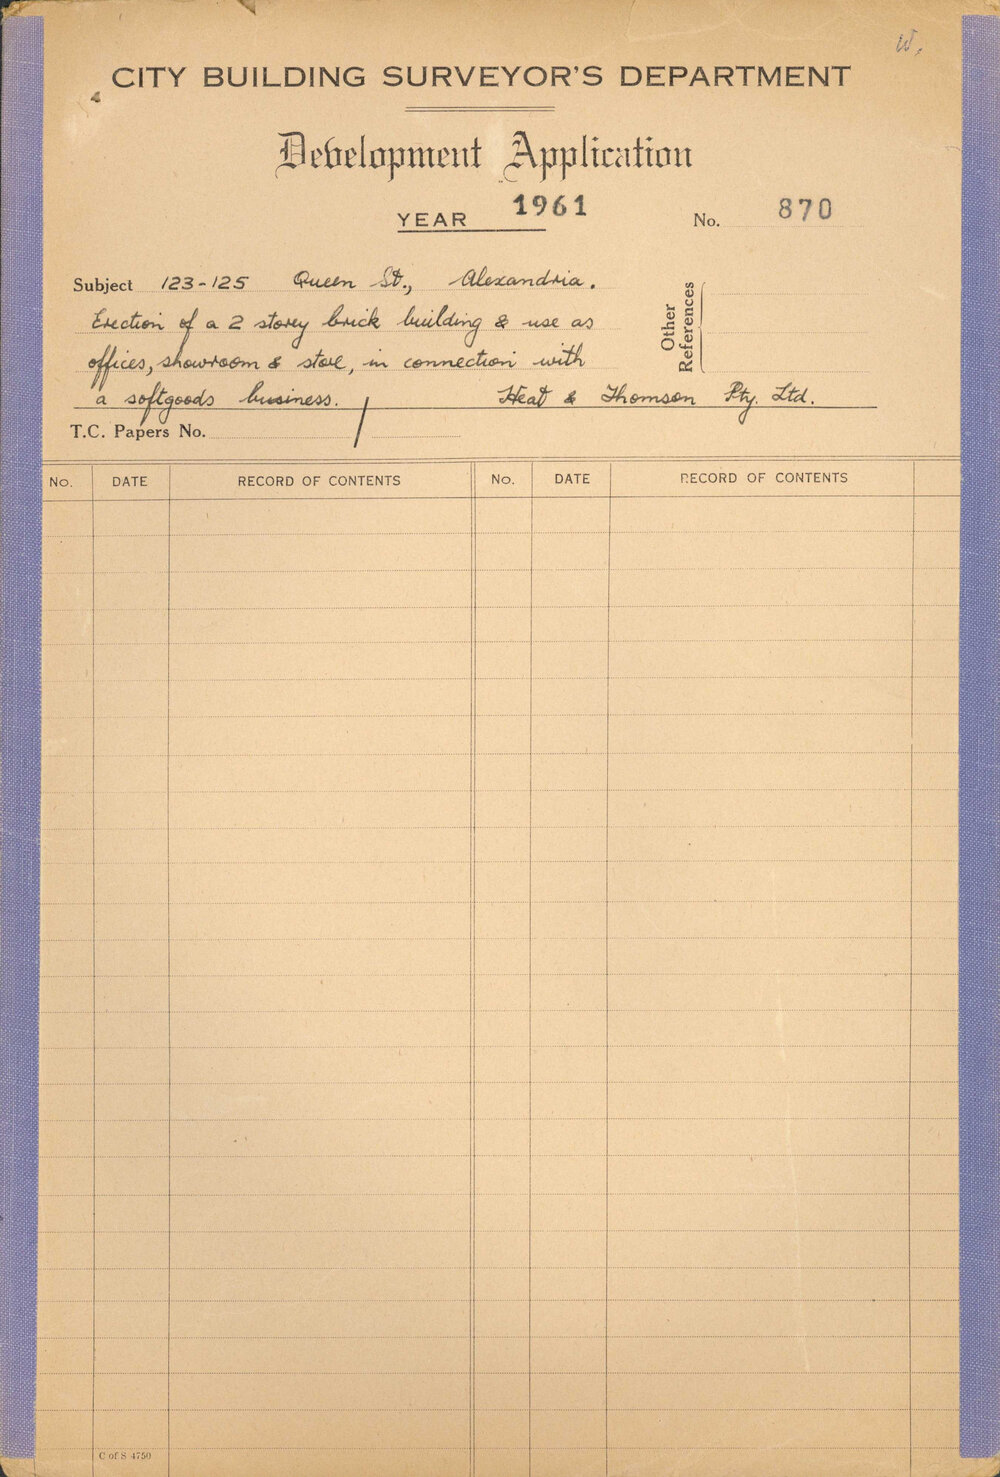 W.
CITY BUILDING SURVEYOR'S DEPARTMENT
Development Application
YEAR 1961 No. 870
Subject 123-125 Queen St., Alexandria.
Erection of a 2 storey brick building & use as
offices, showroom & store, in connection with
a softgoods business. Heat & Thomson Pty. Ltd.
Other References
T.C. Papers No. /
No. DATE RECORD OF CONTENTS No. DATE RECORD OF CONTENTS
C of S 4750